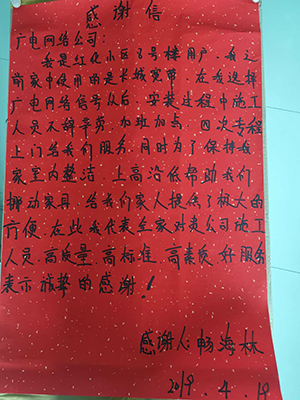 感谢信
广电网络公司:
我是红化小区8号楼用户,我之
前家中使用的是长城宽带,在我选择
广电网络信号以后,安装过程中施工
人员不辞辛劳,加班加点,四次专程
上门给我们服务,同时为了保持我
家室内整洁,上高沿低帮助我们
挪动家具,给我们家人提供了极大的
方便,在此我代表全家对贵公司施工
人员,高质量,高标准,高素质,好服务
表示诚挚的感谢!
感谢人:畅海林
2019.4.19